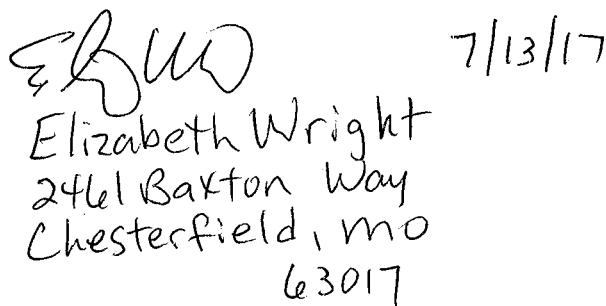 7/13/17
Elizabeth Wright
2461 Baxton Way
Chesterfield, MO
63017